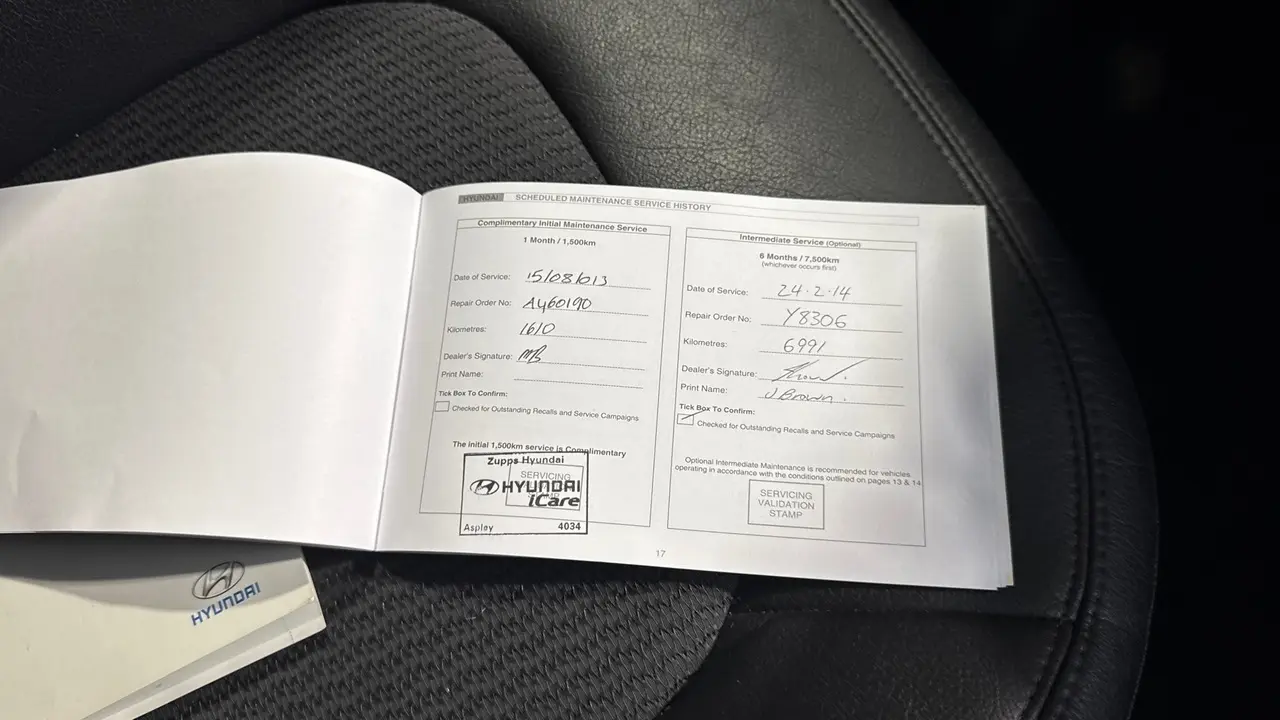 HYUNDAI SCHEDULED MAINTENANCE SERVICE HISTORY
Complimentary Initial Maintenance Service
1 Month / 1,500km
Date of Service: 15/08/013
Repair Order No: AY60190
Kilometres: 1610
Dealer's Signature: MB
Print Name:
Tick Box To Confirm:
Checked for Outstanding Recalls and Service Campaigns
The initial 1,500km service is Complimentary
Zupps Hyundai
SERVICING
HYUNDAI
iCare
Aspley 4034
Intermediate Service (Optional)
6 Months / 7,500km
(whichever occurs first)
Date of Service: 24.2.14
Repair Order No: Y8306
Kilometres: 6991
Dealer's Signature:
Print Name: J Brown.
Tick Box To Confirm:
Checked for Outstanding Recalls and Service Campaigns
Optional Intermediate Maintenance is recommended for vehicles
operating in accordance with the conditions outlined on pages 13 & 14
SERVICING
VALIDATION
STAMP
17
HYUNDAI